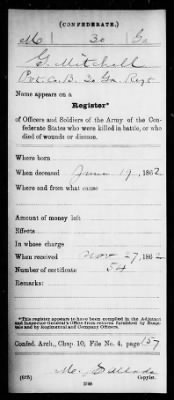 (CONFEDERATE.)
M | 30 | Ga
G. Mitchell
Pvt. Co. B. 30 Ga. Regt
Name appears on a
Register*
of Officers and Soldiers of the Army of the Con-
federate States who were killed in battle, or who
died of wounds or disease.
Where born
When deceased June 19, 1862
Where and from what cause
Amount of money left
Effects
In whose charge
When received Nov 27, 1862
Number of certificate 54
Remarks:
*This register appears to have been compiled in the Adjutant
and Inspector General's Office from records furnished by Hospi-
tals and by Regimental and Company Officers.
Confed. Arch., Chap. 10, File No. 4, page 157
(635) Mc.
Copyist.